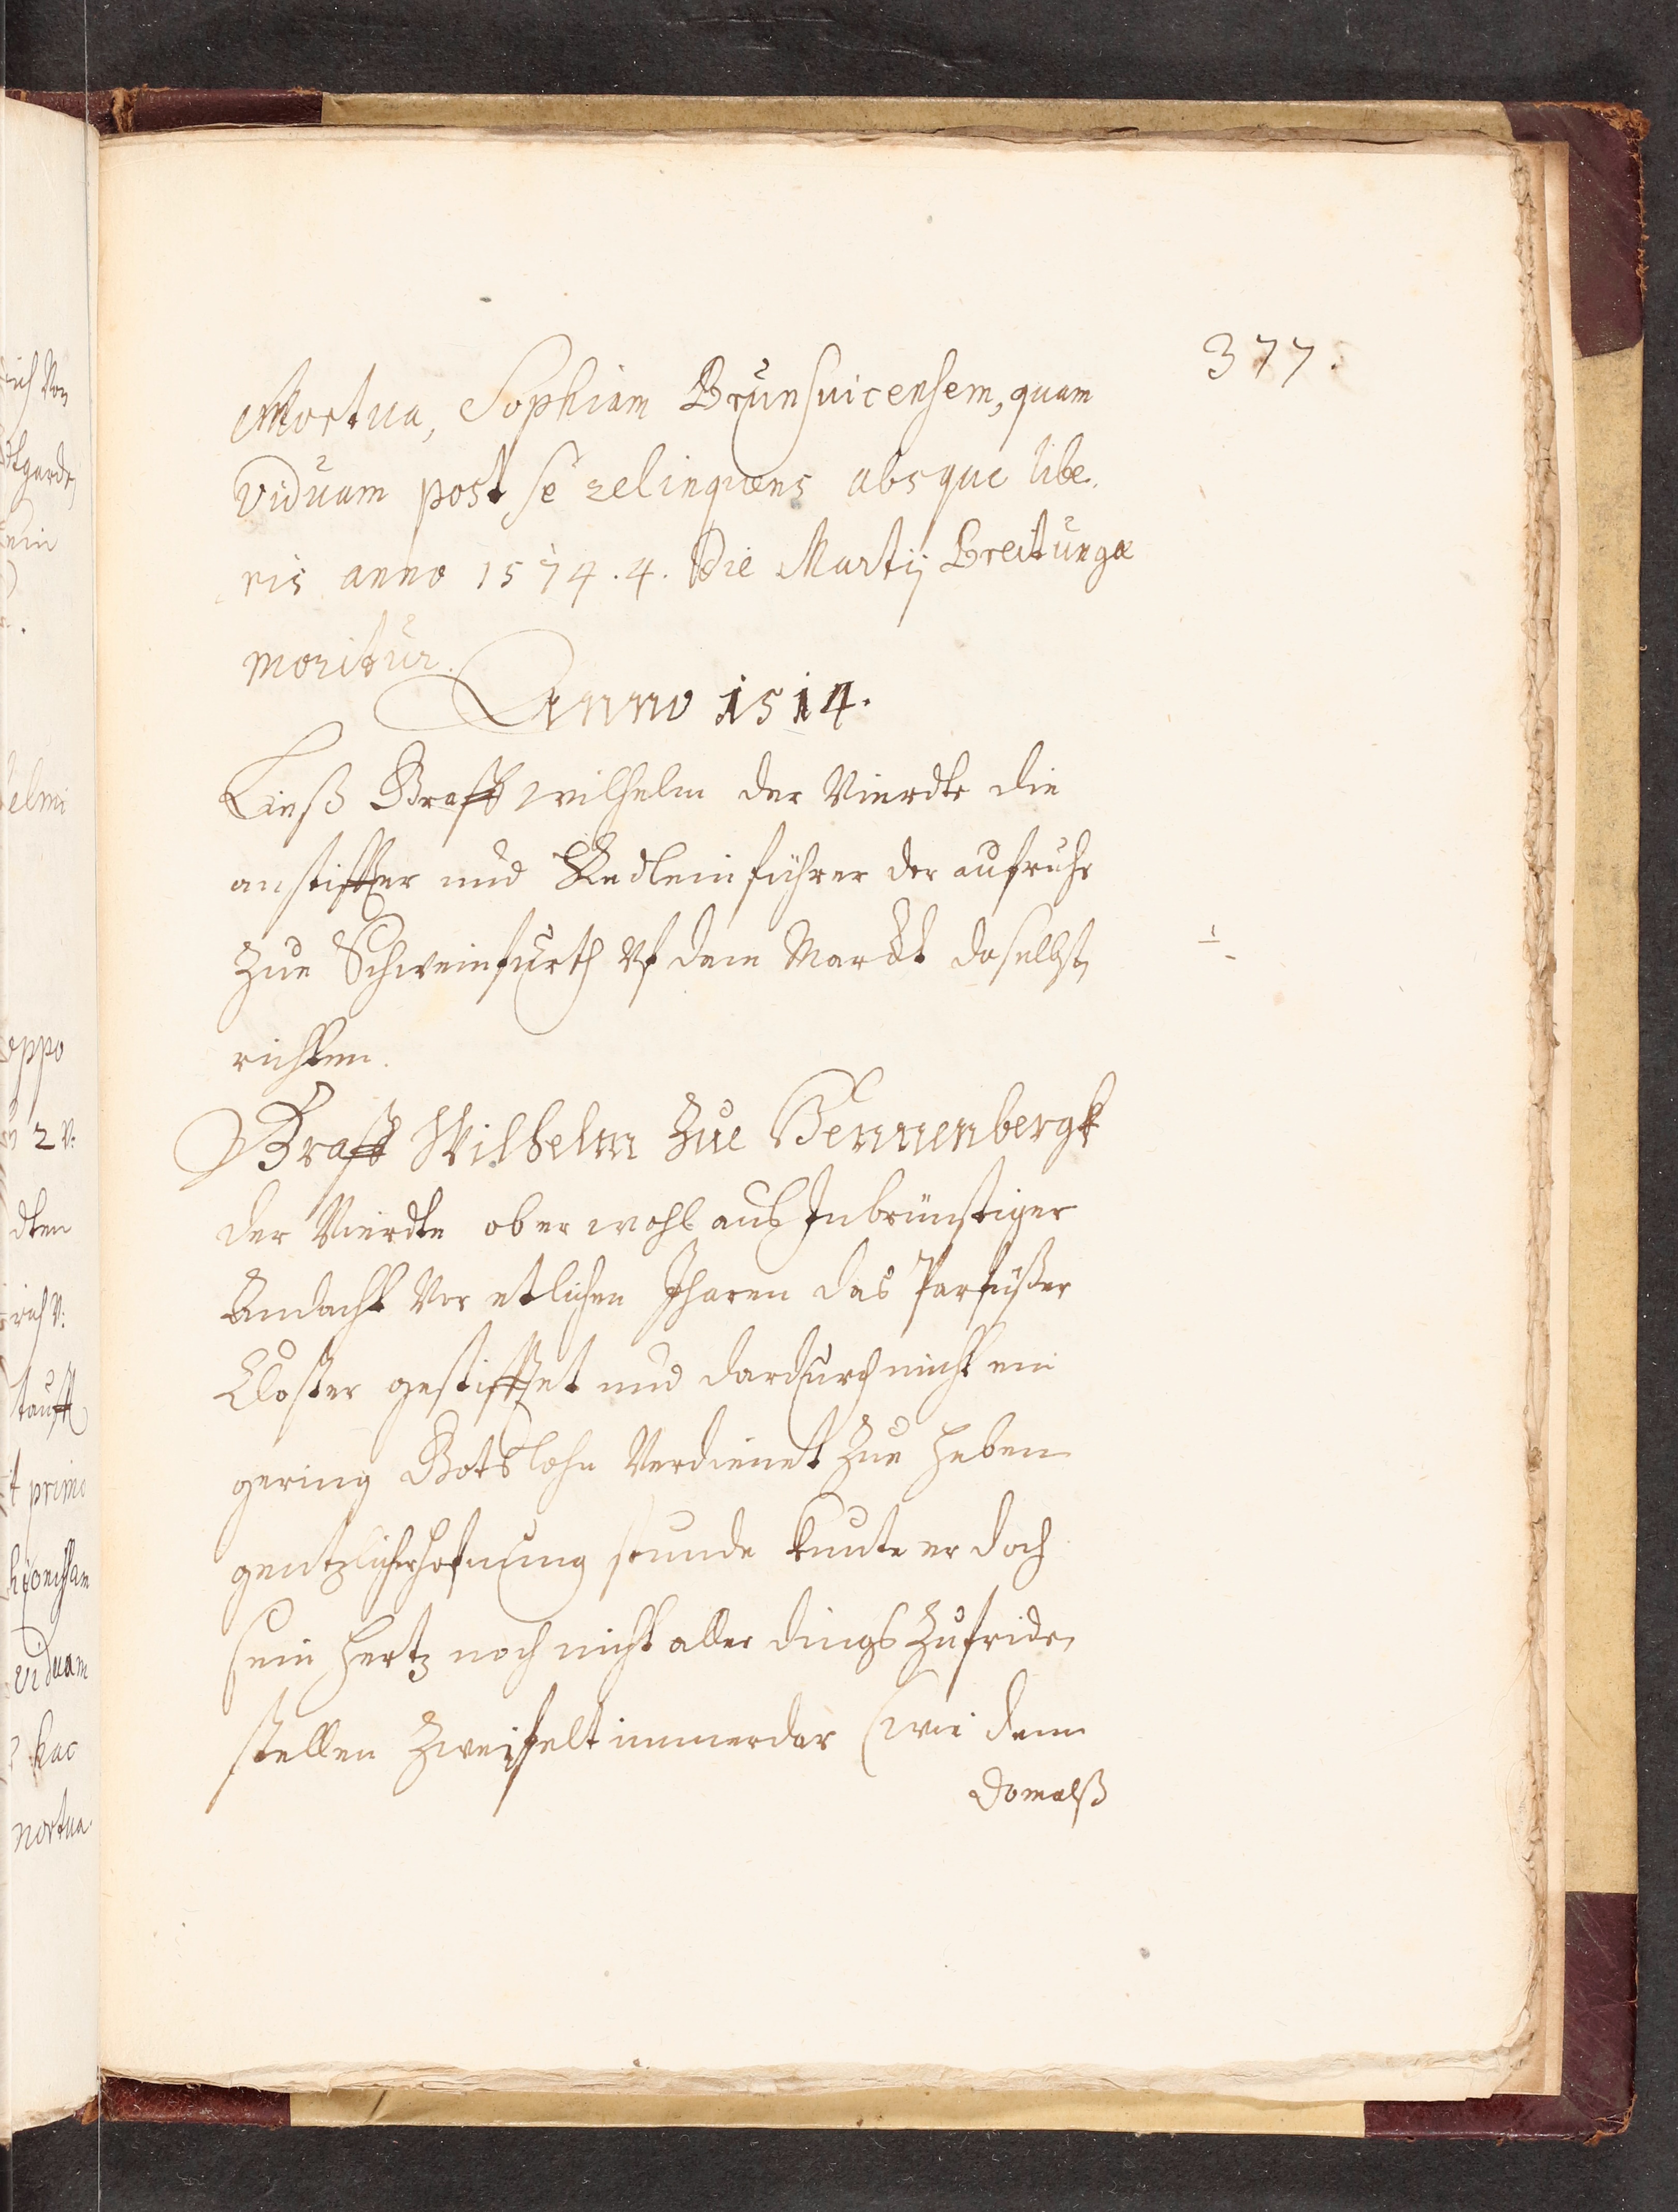 377.
Mortua, Sophiam Brunsuicensem, quam
viduam post se relinquens absque libe.
ris anno 1574. 4. Die Martij Breitungæ
moritur.
Anno 1514.
Ließ Graff Wilhelm der Vierdte die
anstiffter und Redleinführer der aufruhr
zue Schweinfurth vf dem Marckt daselbst,
richten.
Graff Wilhelm zue Hennenbergk
der Vierdte ob er wohl aus Inbrünstiger
Andacht Vor etlichen Jharen das Parfüßer
Closter gestifftet und dardurch nicht ein
gering Gotslohn Verdienet zue haben
gentzlicher hofnung stunde kunte er doch
sein hertz noch nicht aller dings zufriden,
stellen zweifelt immerdar (wie dann
Domalß